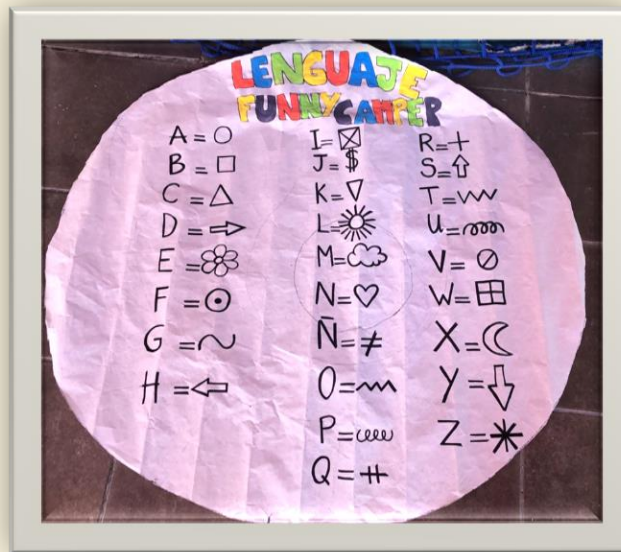 LENGUAJE
FUNNY CAMPER
A = ○
B = □
C = △
D = ⇨
E = ❀
F = ⊙
G = ~
H = ⇦
I = ☒
J = $
K = ▽
L = ☼
M = ☁
N = ♡
Ñ = ≠
O = 〰
P = eeee
Q = ⧺
R = +
S = ⇧
T = VVV
U = ഝ
V = ⊘
W = ⊞
X = ☾
Y = ⇩
Z = ✳